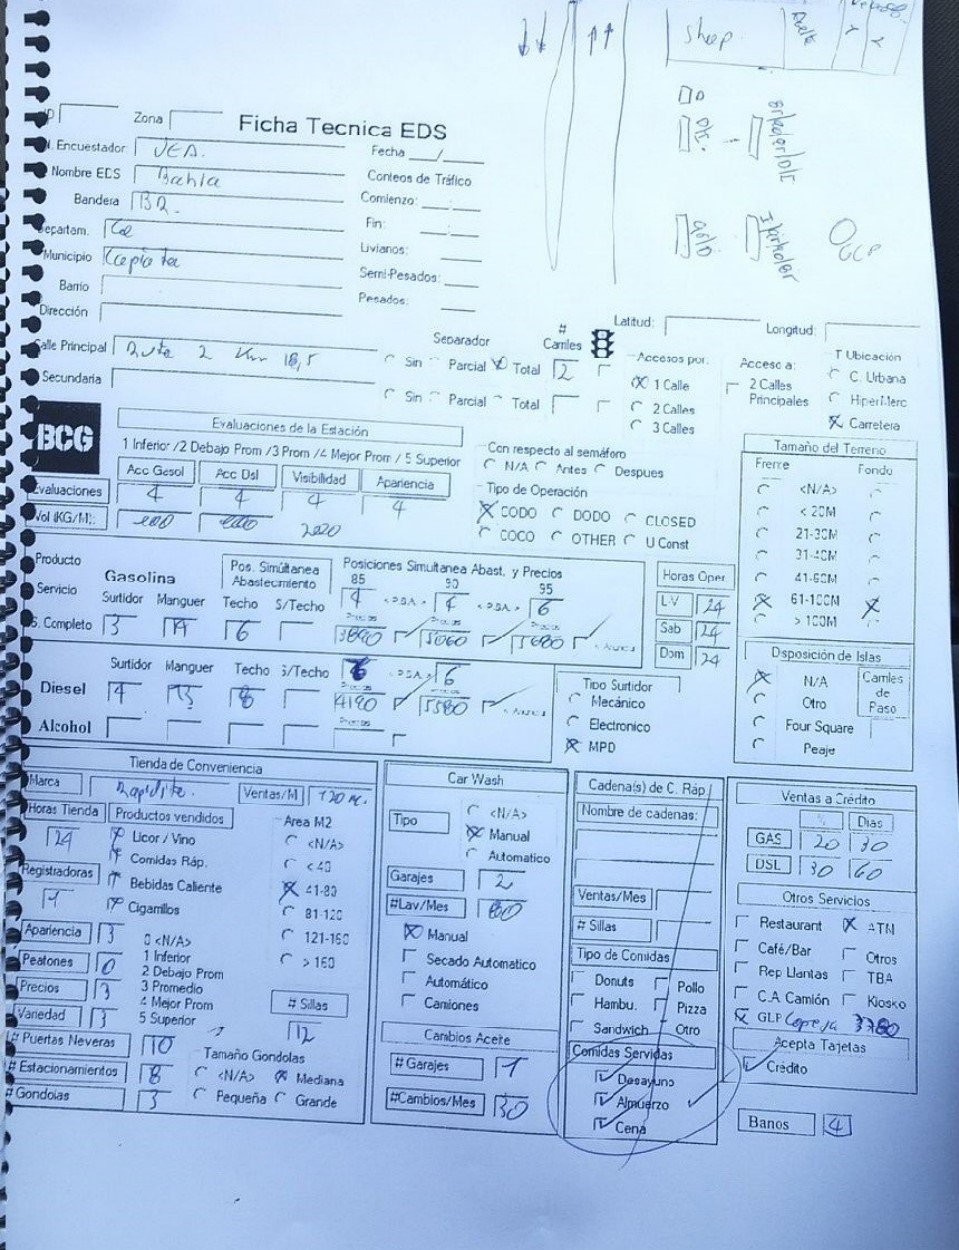 Shop
ID Zona
Ficha Tecnica EDS
N. Encuestador VEA. Fecha __/__
Nombre EDS Bahia Conteos de Tráfico
Bandera BR. Comienzo: __:__
Departam. Ce Fin: __:__
Municipio Capiata Livianos:
Barrio Semi-Pesados:
Dirección Pesados:
Latitud: Longitud:
Calle Principal Ruta 2 Km 18,5 Separador # Carriles
Sin Parcial Total 2
Secundaria
Sin Parcial Total
Accesos por: Acceso a: T Ubicación
1 Calle 2 Calles Principales C. Urbana
2 Calles HiperMerc
3 Calles Carretera
BCG
Evaluaciones de la Estación
1 Inferior /2 Debajo Prom /3 Prom /4 Mejor Prom / 5 Superior
Acc Gasol Acc Dsl Visibilidad Apariencia
Evaluaciones 4 4 4 4
Vol (KG/M):
Con respecto al semáforo
N/A Antes Despues
Tipo de Operación
CODO DODO CLOSED
COCO OTHER U Const
Tamaño del Terreno
Frente Fondo
<N/A>
< 20M
21-30M
31-40M
41-60M
61-100M
> 100M
Producto
Servicio Gasolina
Pos. Simúltanea Abastecimiento
Posiciones Simultanea Abast. y Precios
85 90 95
4 4 6
Surtidor Manguer Techo S/Techo
S. Completo 3 14 6
3890 5060 5680
Horas Oper.
L-V 24
Sab 24
Dom 24
Surtidor Manguer Techo S/Techo 6 6
Diesel 4 13 8 4190 5580
Alcohol
Tipo Surtidor
Mecánico
Electronico
MPD
Disposición de Islas
N/A
Otro
Four Square
Peaje
Carriles de Paso
Tienda de Conveniencia
Marca Rapidito. Ventas/M 120 m.
Horas Tienda 24
Productos vendidos
Licor / Vino
Comidas Ráp.
Bebidas Caliente
Cigarrillos
Registradoras 1
Area M2
<N/A>
< 40
41-80
81-120
121-160
> 160
Apariencia 3
Peatones 0
Precios 3
Variedad 3
0 <N/A>
1 Inferior
2 Debajo Prom
3 Promedio
4 Mejor Prom
5 Superior
# Sillas 12
# Puertas Neveras 10
# Estacionamientos 8
# Gondolas 3
Tamaño Gondolas
<N/A> Mediana
Pequeña Grande
Car Wash
Tipo
<N/A>
Manual
Automatico
Garajes 2
#Lav/Mes 800
Manual
Secado Automatico
Automático
Camiones
Cambios Aceite
# Garajes 1
#Cambios/Mes 30
Cadena(s) de C. Rap
Nombre de cadenas:
Ventas/Mes
# Sillas
Tipo de Comidas
Donuts Pollo
Hambu. Pizza
Sandwich Otro
Comidas Servidas
Desayuno
Almuerzo
Cena
Ventas a Crédito
% Dias
GAS 20 30
DSL 30 60
Otros Servicios
Restaurant ATM
Café/Bar Otros
Rep Llantas TBA
C.A Camión Kiosko
GLP Copesa 3780
Acepta Tajetas
Crédito
Banos 4